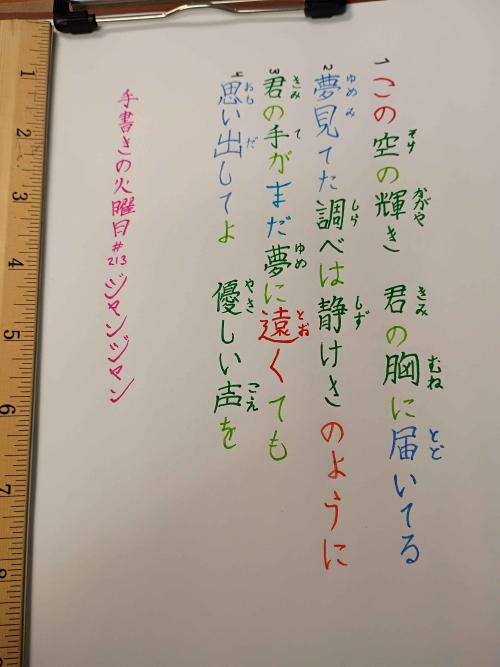 1 この空の輝き 君の胸に届いてる
そら かがや きみ むね とど
2 夢見てた調べは静けきのように
ゆめ み しら しず
3 君の手がまだ夢に遠くても
きみ て ゆめ とお
4 思い出してよ 優しい声を
おも だ やさ こえ
手書きの火曜日#213 ジャンジャン
1
2
3
4
5
6
7
8